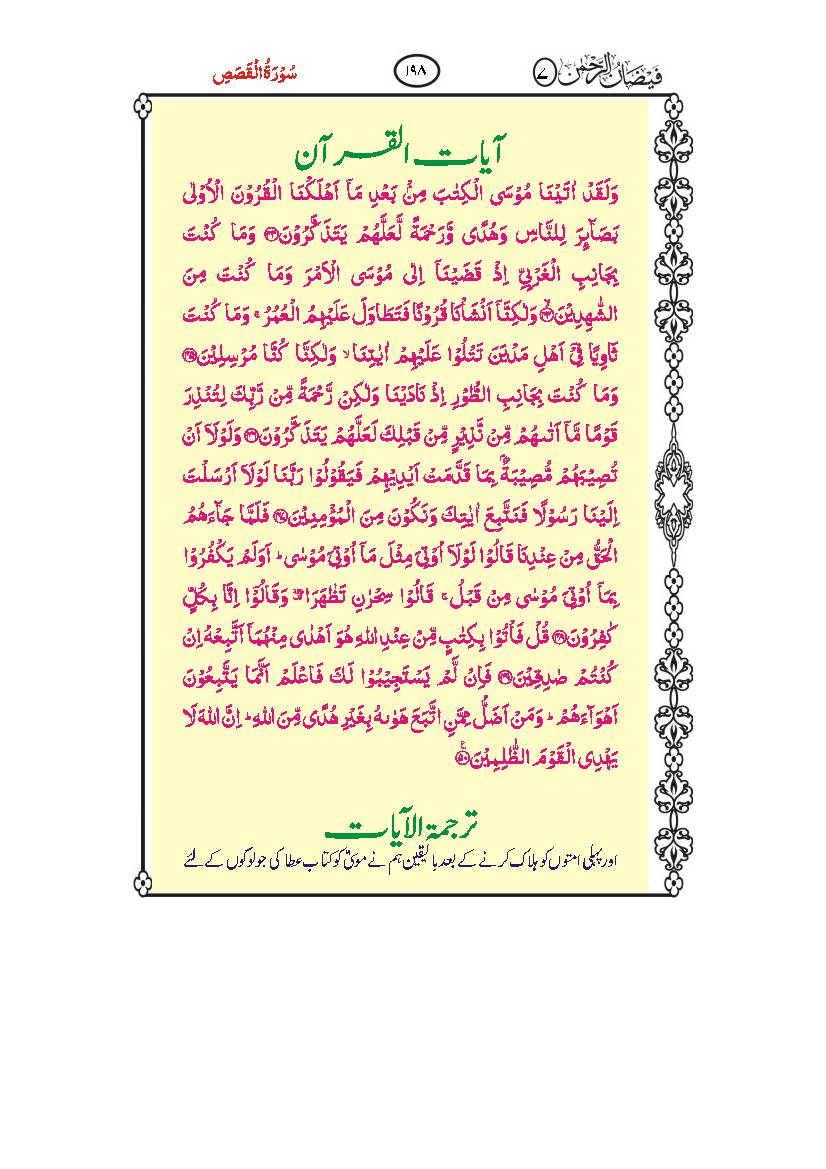 فیضانُ الرَّحمٰن ۷
۱۹۸
سُوْرَۃُ الْقَصَصِ
آیات القرآن
وَلَقَدْ اٰتَیْنَا مُوْسَی الْکِتٰبَ مِنْۢ بَعْدِ مَاۤ اَهْلَکْنَا الْقُرُوْنَ الْاُوْلٰی
بَصَآئِرَ لِلنَّاسِ وَهُدًی وَّرَحْمَةً لَّعَلَّهُمْ یَتَذَکَّرُوْنَ﴿۴۳﴾ وَمَا کُنْتَ
بِجَانِبِ الْغَرْبِیِّ اِذْ قَضَیْنَاۤ اِلٰی مُوْسَی الْاَمْرَ وَمَا کُنْتَ مِنَ
الشّٰهِدِیْنَ﴿۴۴﴾ۙ وَلٰکِنَّاۤ اَنْشَاْنَا قُرُوْنًا فَتَطَاوَلَ عَلَیْهِمُ الْعُمُرُ ۚ وَمَا کُنْتَ
ثَاوِیًا فِیْۤ اَهْلِ مَدْیَنَ تَتْلُوْا عَلَیْهِمْ اٰیٰتِنَا ۙ وَلٰکِنَّا کُنَّا مُرْسِلِیْنَ﴿۴۵﴾
وَمَا کُنْتَ بِجَانِبِ الطُّوْرِ اِذْ نَادَیْنَا وَلٰکِنْ رَّحْمَةً مِّنْ رَّبِّکَ لِتُنْذِرَ
قَوْمًا مَّاۤ اَتٰىهُمْ مِّنْ نَّذِیْرٍ مِّنْ قَبْلِکَ لَعَلَّهُمْ یَتَذَکَّرُوْنَ﴿۴۶﴾ وَلَوْلَاۤ اَنْ
تُصِیْبَهُمْ مُّصِیْبَةٌۢ بِمَا قَدَّمَتْ اَیْدِیْهِمْ فَیَقُوْلُوْا رَبَّنَا لَوْلَاۤ اَرْسَلْتَ
اِلَیْنَا رَسُوْلًا فَنَتَّبِعَ اٰیٰتِکَ وَنَکُوْنَ مِنَ الْمُؤْمِنِیْنَ﴿۴۷﴾ فَلَمَّا جَآءَهُمُ
الْحَقُّ مِنْ عِنْدِنَا قَالُوْا لَوْلَاۤ اُوْتِیَ مِثْلَ مَاۤ اُوْتِیَ مُوْسٰی ؕ اَوَلَمْ یَکْفُرُوْا
بِمَاۤ اُوْتِیَ مُوْسٰی مِنْ قَبْلُ ۚ قَالُوْا سِحْرٰنِ تَظٰهَرَا ۟ۥ وَقَالُوْۤا اِنَّا بِکُلٍّ
کٰفِرُوْنَ﴿۴۸﴾ قُلْ فَاْتُوْا بِکِتٰبٍ مِّنْ عِنْدِ اللهِ هُوَ اَهْدٰی مِنْهُمَاۤ اَتَّبِعْهُ اِنْ
کُنْتُمْ صٰدِقِیْنَ﴿۴۹﴾ فَاِنْ لَّمْ یَسْتَجِیْبُوْا لَکَ فَاعْلَمْ اَنَّمَا یَتَّبِعُوْنَ
اَهْوَآءَهُمْ ؕ وَمَنْ اَضَلُّ مِمَّنِ اتَّبَعَ هَوٰىهُ بِغَیْرِ هُدًی مِّنَ اللهِ ؕ اِنَّ اللهَ لَا
یَهْدِی الْقَوْمَ الظّٰلِمِیْنَ﴿۵۰﴾
ترجمۃ الآیات
اور پہلی امتوں کو ہلاک کرنے کے بعد بالیقین ہم نے موسیٰؑ کو کتاب عطا کی جو لوگوں کے لئے